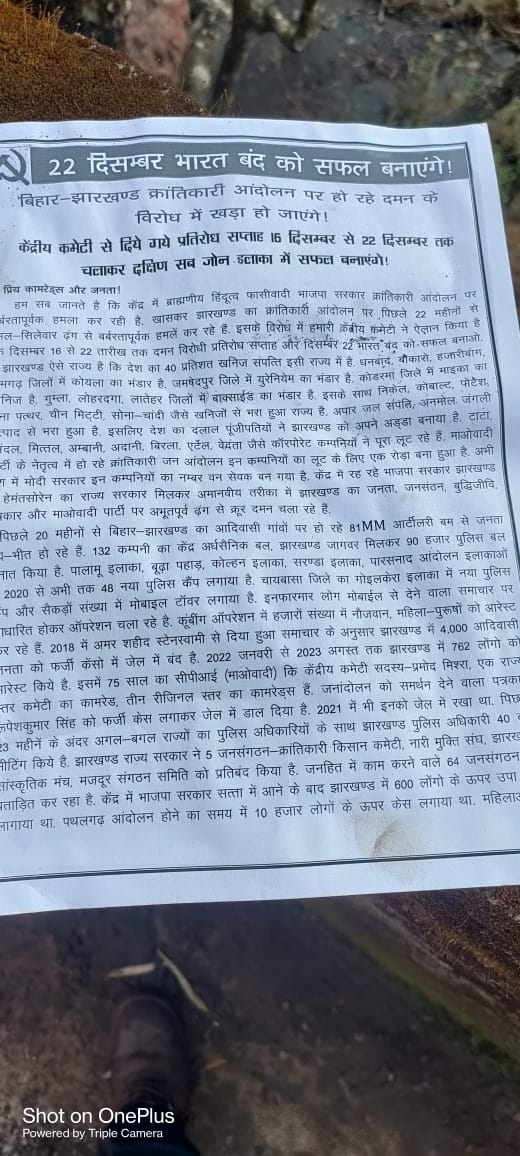 22 दिसम्बर भारत बंद को सफल बनाएंगे!
बिहार–झारखण्ड क्रांतिकारी आंदोलन पर हो रहे दमन के
विरोध में खड़ा हो जाएंगे!
केंद्रीय कमेटी से दिये गये प्रतिरोध सप्ताह 16 दिसम्बर से 22 दिसम्बर तक
चलाकर दक्षिण सब जोन इलाका में सफल बनाएंगे!
प्रिय कामरेड्स और जनता!
हम सब जानते है कि केंद्र में ब्राह्मणीय हिंदुत्व फासीवादी भाजपा सरकार क्रांतिकारी आंदोलन पर
बर्बरतापूर्वक हमला कर रही है. खासकर झारखण्ड का क्रांतिकारी आंदोलन पर पिछले 22 महीनों से
सिलेवार ढ़ंग से बर्बरतापूर्वक हमलें कर रहे हैं. इसके विरोध में हमारी केंद्रीय कमेटी ने ऐलान किया है
दिसम्बर 16 से 22 तारीख तक दमन विरोधी प्रतिरोध सप्ताह और दिसम्बर 22 भारत बंद को सफल बनाओ.
झारखण्ड ऐसे राज्य है कि देश का 40 प्रतिशत खनिज संपत्ति इसी राज्य में है. धनबाद, बौकारो, हजारीबांग,
मगढ़ जिलों में कोयला का भंडार है. जमषेदपुर जिले में युरेनियम का भंडार है. कोडरमा जिले में माइका का
निज है. गुम्ला, लोहरदगा, लातेहर जिलों में बाक्साईड का भंडार है. इसके साथ निकेल, कोबाल्ट, पोटेश,
ना पत्थर, चीन मिट्टी, सोना–चांदी जैसे खनिजों से भरा हुआ राज्य है. अपार जल संपति, अनमोल जंगली
त्पाद से भरा हुआ है. इसलिए देश का दलाल पूंजीपतियों ने झारखण्ड को अपने अड्डा बनाया है. टाटा,
दल, मित्तल, अम्बानी, अदानी, बिरला, एर्टेल, वेदंता जैसे कॉरपोरेट कम्पनियों ने पूरा लूट रहे हैं. माओवादी
र्टी के नेतृत्व में हो रहे क्रांतिकारी जन आंदोलन इन कम्पनियों का लूट के लिए एक रोड़ा बना हुआ है. अभी
में मोदी सरकार इन कम्पनियों का नम्बर वन सेवक बन गया है. केंद्र में रह रहे भाजपा सरकार झारखण्ड
हेमंतसोरेन का राज्य सरकार मिलकर अमानवीय तरीका में झारखण्ड का जनता, जनसंठन, बुद्धिजीवि,
कार और माओवादी पार्टी पर अभूतपूर्व ढ़ंग से क्रूर दमन चला रहे हैं.
पिछले 20 महीनों से बिहार–झारखण्ड का आदिवासी गांवों पर हो रहे 81MM आर्टीलरी बम से जनता
भीत हो रहे हैं. 132 कम्पनी का केंद्र अर्धसैनिक बल, झारखण्ड जागवर मिलकर 90 हजार पुलिस बल
नात किया है. पालामू इलाका, बूढ़ा पहाड़, कोल्हन इलाका, सरण्डा इलाका, पारसनाद आंदोलन इलाकाओं
2020 से अभी तक 48 नया पुलिस कैंप लगाया है. चायबासा जिले का गोइलकेरा इलाका में नया पुलिस
और सैकड़ों संख्या में मोबाइल टॉवर लगाया है. इनफारमार लोग मोबाईल से देने वाला समाचार पर
आधारित होकर ऑपरेशन चला रहे है. कूंबींग ऑपरेशन में हजारों संख्या में नौजवान, महिला–पुरूषों को आरेस्ट
कर रहे हैं. 2018 में अमर शहीद स्टेनस्वामी से दिया हुआ समाचार के अनुसार झारखण्ड में 4,000 आदिवासी
नता को फर्जी केंसो में जेल में बंद है. 2022 जनवरी से 2023 अगस्त तक झारखण्ड में 762 लोगों को
रेस्ट किये है. इसमें 75 साल का सीपीआई (माओवादी) कि केंद्रीय कमेटी सदस्य–प्रमोद मिश्रा, एक राज्य
तर कमेटी का कामरेड, तीन रीजिनल स्तर का कामरेड्स हैं. जनांदोलन को समर्थन देने वाला पत्रकार
रूपेशकुमार सिंह को फर्जी केस लगाकर जेल में डाल दिया है. 2021 में भी इनको जेल में रखा था. पिछ
23 महीनें के अंदर अगल–बगल राज्यों का पुलिस अधिकारियों के साथ झारखण्ड पुलिस अधिकारी 40
मीटिंग किये है. झारखण्ड राज्य सरकार ने 5 जनसंगठन–क्रांतिकारी किसान कमेटी, नारी मुक्ति संघ, झारख
सांस्कृतिक मंच, मजदूर संगठन समिति को प्रतिबंद किया है. जनहित में काम करने वाले 64 जनसंगठन
प्रताड़ित कर रहा है. केंद्र में भाजपा सरकार सत्ता में आने के बाद झारखण्ड में 600 लोंगो के ऊपर उपा
लागाया था. पथलगढ़ आंदोलन होने का समय में 10 हजार लोगों के ऊपर केस लगाया था. महिला
Shot on OnePlus
Powered by Triple Camera